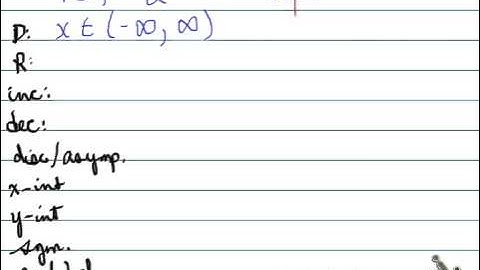 D: x ∈ (-∞, ∞)
R:
inc:
dec:
disc/asymp.
x-int
y-int
sym.